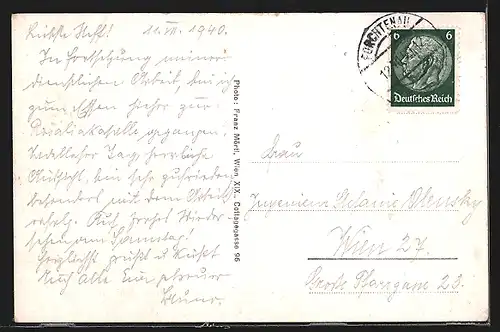 11.VII.1940.
In Fortsetzung meiner
dienstlichen Arbeit, bin ich
zum Essen hieher zur
Rosaliakapelle gegangen.
Tag, herrliche
Aussicht, bin sehr zufrieden
besonders mit dem Arbeits-
Auf frohes Wieder-
sehen am Samstag!
Herzlichst grüßt u. küßt
Euch alle Euer getreuer
Bruno.
Photo: Franz Mörtl, Wien, XIX., Cottagegasse 96
FORCHTENAU
6 6
Deutsches Reich
Frau
Ingenieur
Wien 27.
Große Pfarrgasse 23.